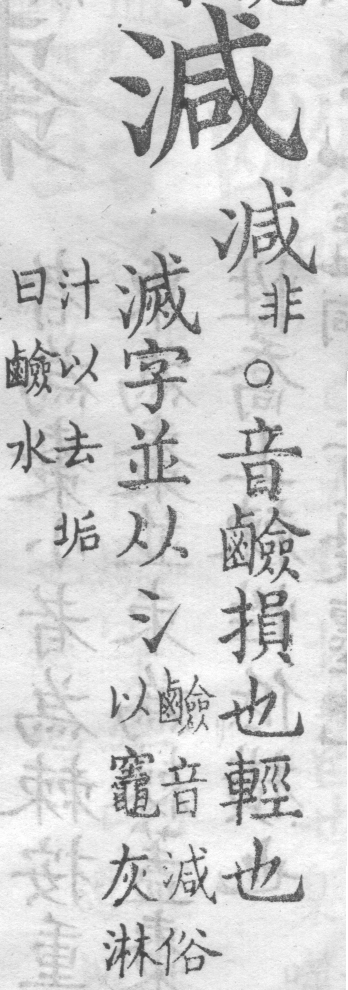 減
减非○音鹼損也輕也
滅字並从氵
鹼音減俗
以竈灰淋
汁以去垢
曰鹼水